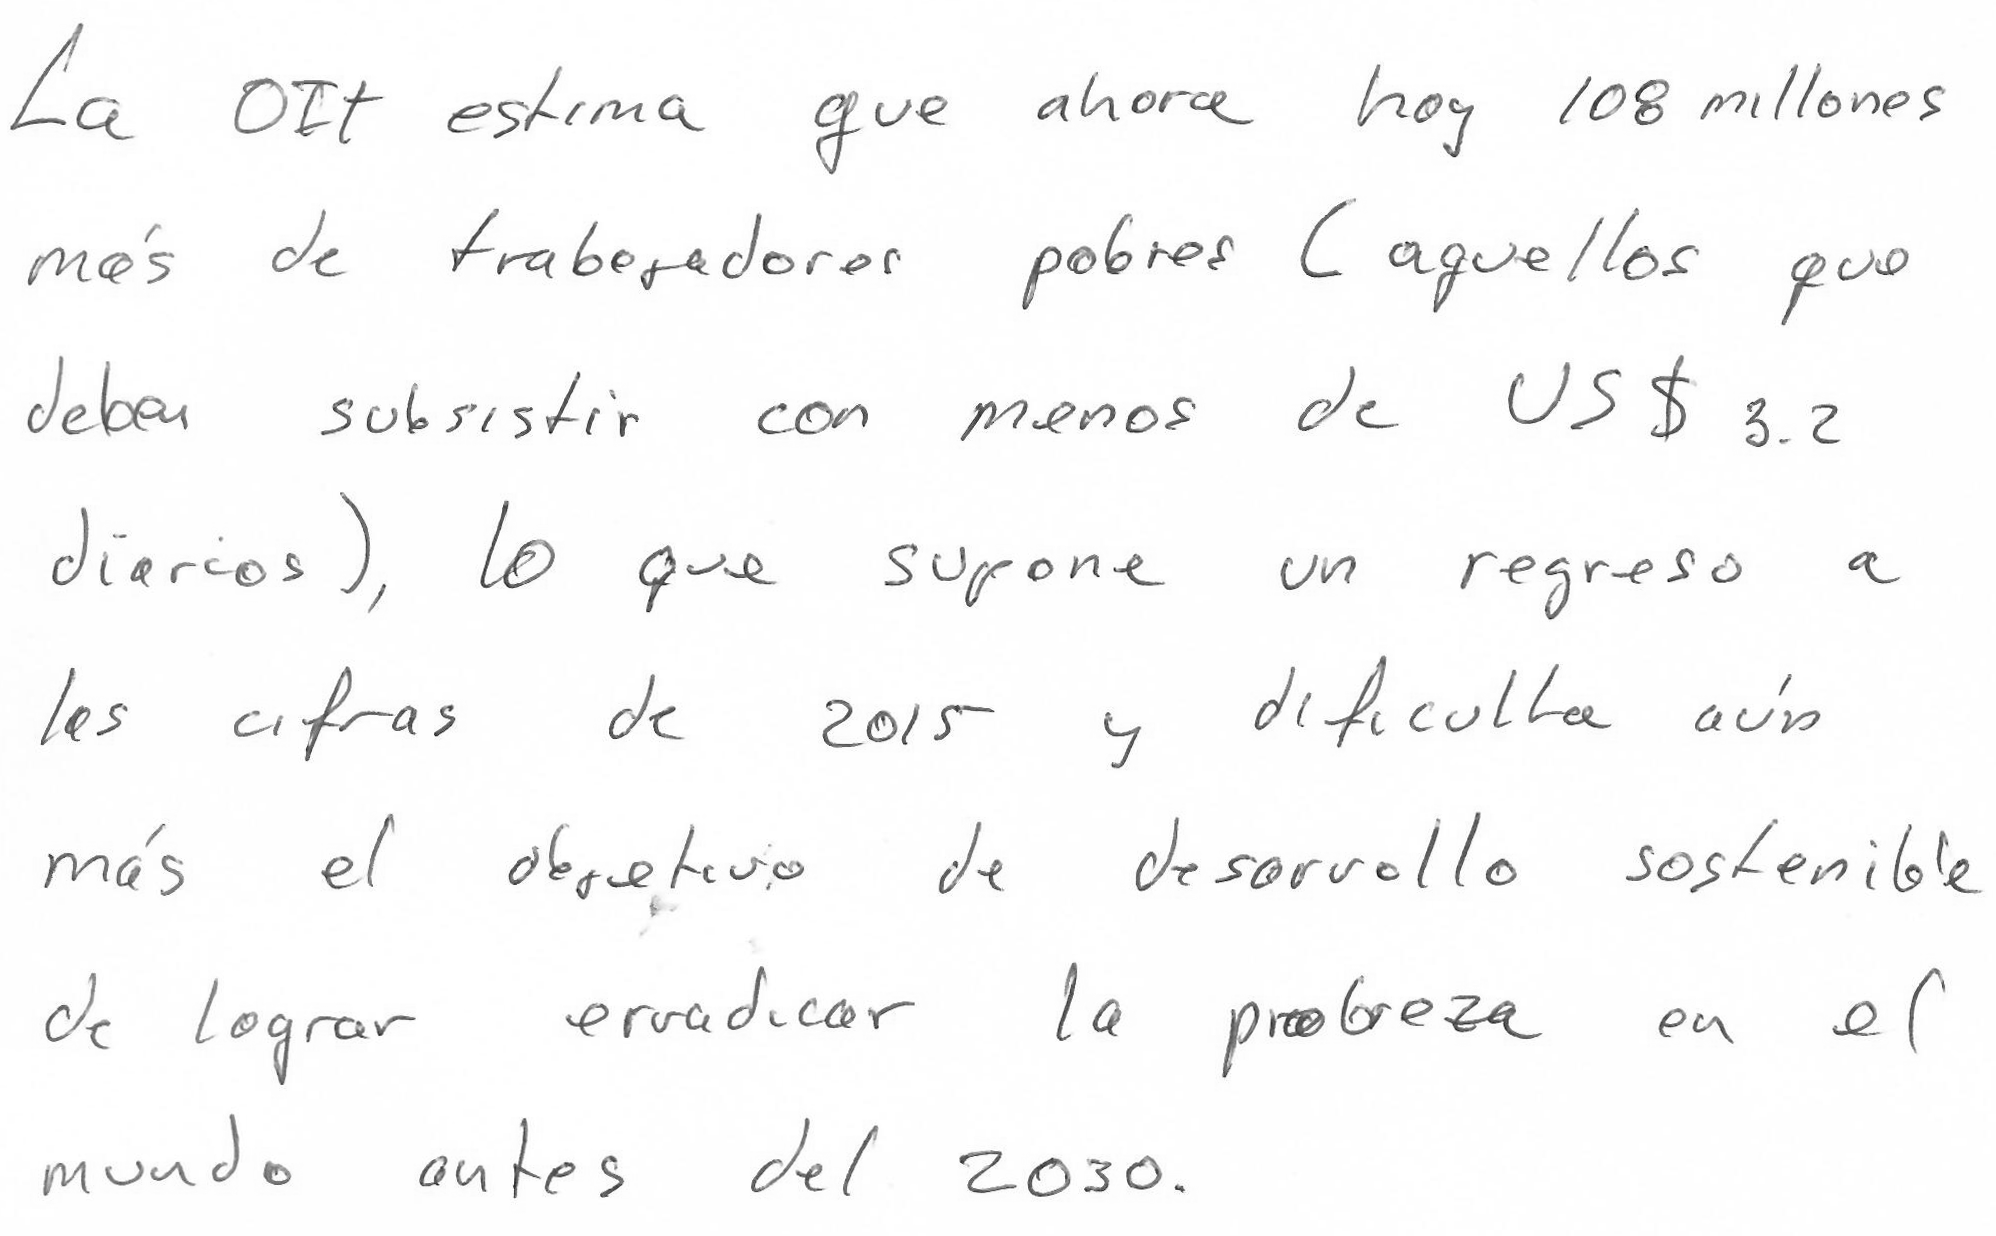 La OIt estima que ahora hay 108 millones
más de trabajadores pobres (aquellos que
deben subsistir con menos de US$ 3.2
diarios), lo que supone un regreso a
las cifras de 2015 y dificulta aún
más el objetivo de desarrollo sostenible
de lograr erradicar la probreza en el
mundo antes del 2030.